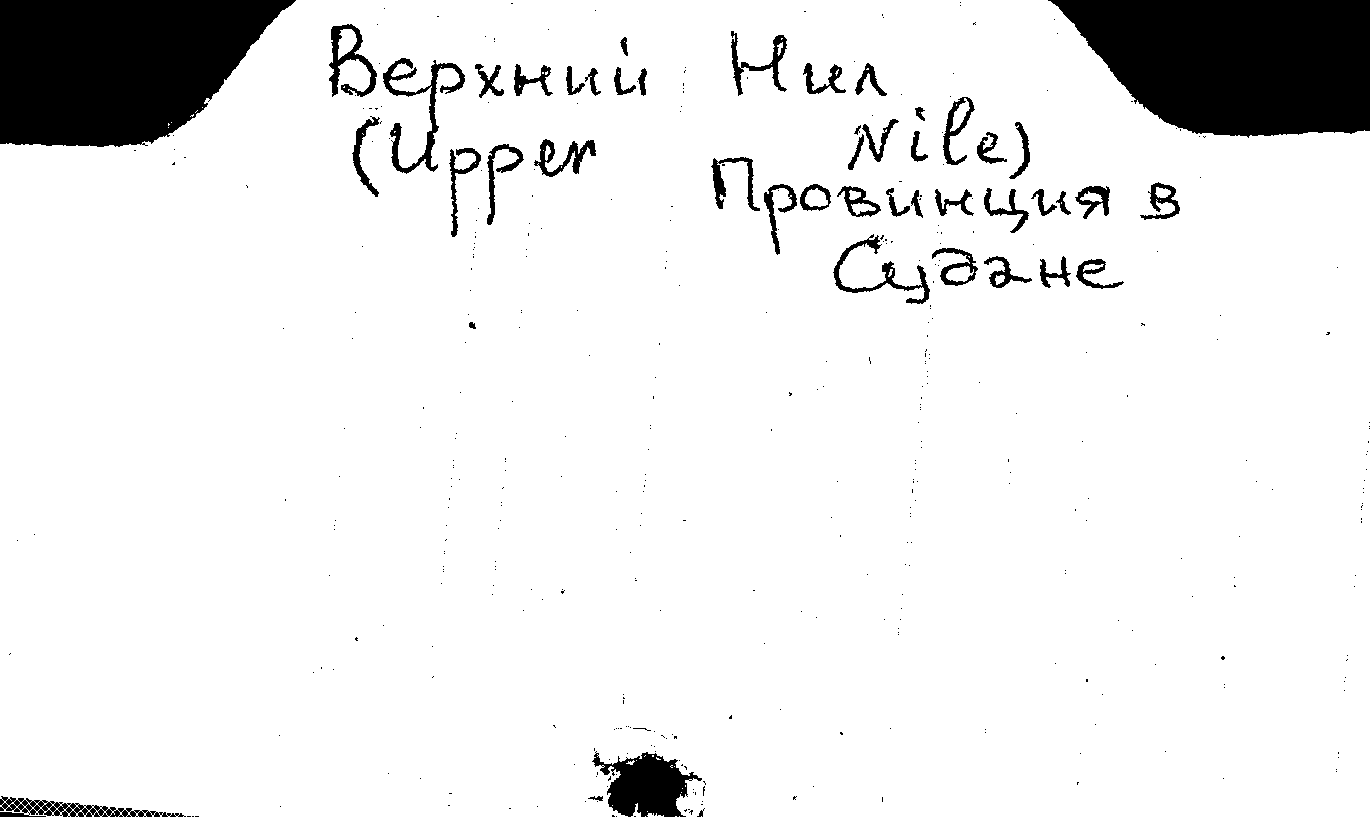 Верхний Нил
(Upper Nile)
Провинция в
Судане